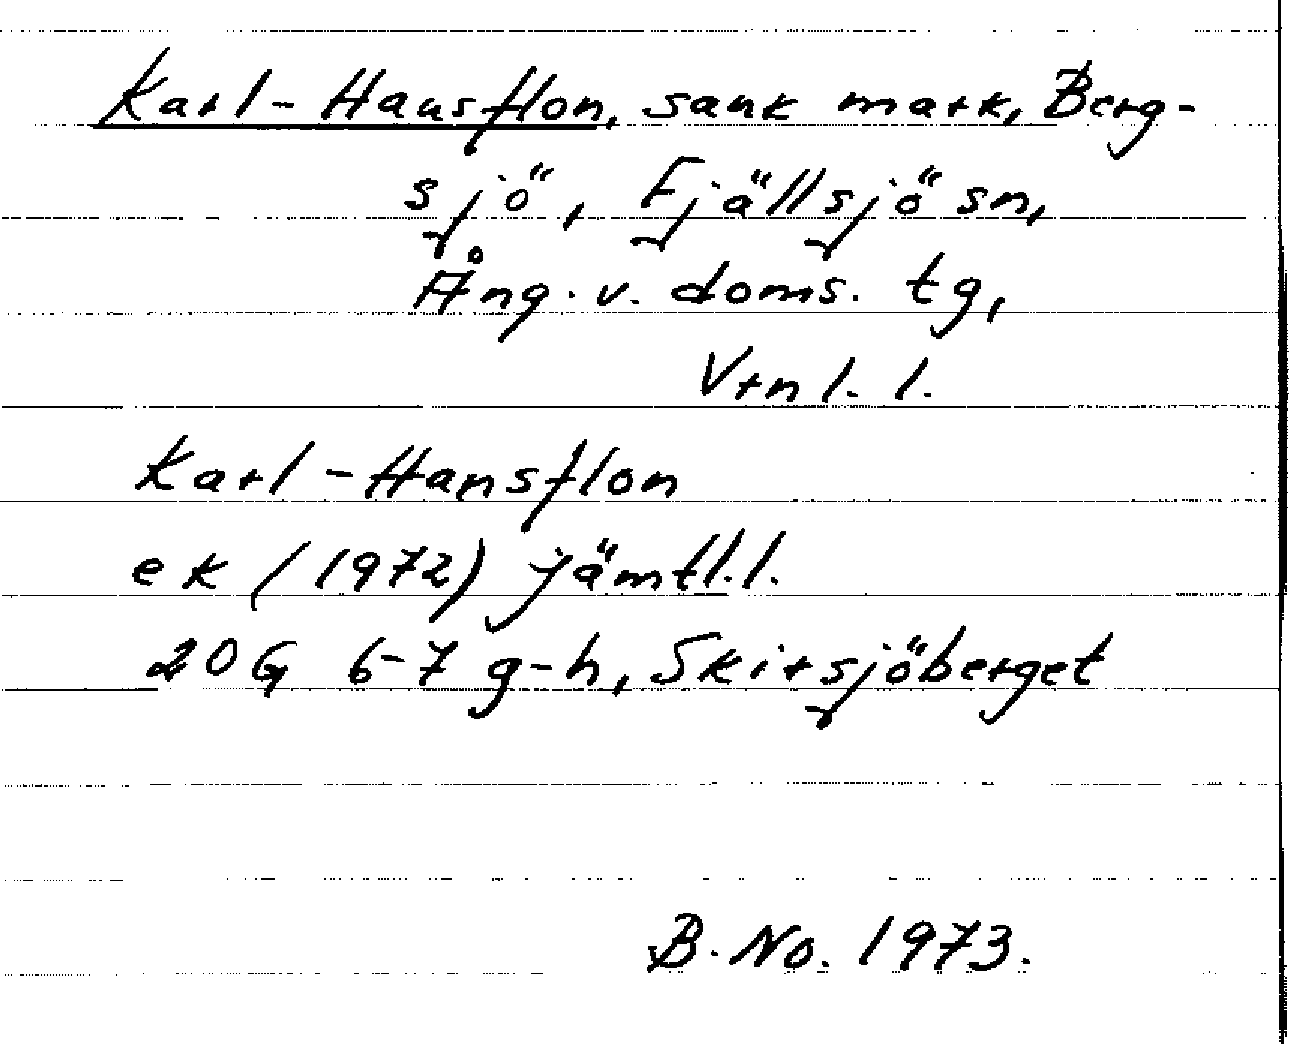 Karl-Hansflon, sank mark, Berg-
sjö, Fjällsjö sn,
Ång. v. doms. tg,
Vrnl. l.
Karl-Hansflon
ek (1972) jämtl.l.
20G 6-7 g-h, Skirsjöberget
B. No. 1973.